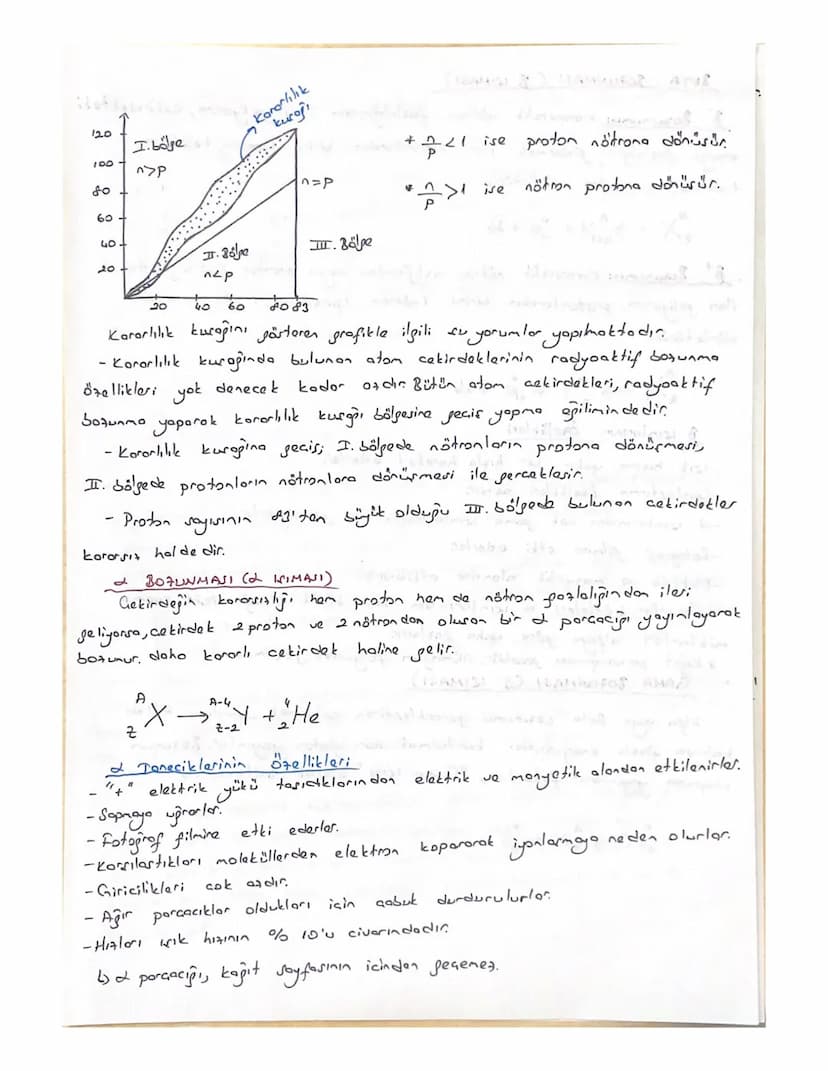 Kararlılık
kuşağı
120
100
80
60
40
20
I. bölge
n>p
n=p
II. Bölge
n<p
III. Bölge
20 40 60 80 83
* n/p <1 ise proton nötrona dönüşür.
* n/p >1 ise nötron protona dönüşür.
Kararlılık kuşağını gösteren grafikle ilgili şu yorumlar yapılmaktadır.
- Kararlılık kuşağında bulunan atom çekirdeklerinin radyoaktif bozunma
özellikleri yok denecek kadar azdır. Bütün atom çekirdekleri, radyoaktif
bozunma yaparak kararlılık kuşağı bölgesine geçiş yapma eğilimindedir.
- Kararlılık kuşağına geçiş; I. bölgede nötronların protona dönüşmesi,
II. bölgede protonların nötronlara dönüşmesi ile gerçekleşir.
- Proton sayısının 83'ten büyük olduğu III. bölgede bulunan çekirdekler
kararsız haldedir.
α BOZUNMASI (α IŞIMASI)
Çekirdeğin kararsızlığı hem proton hem de nötron fazlalığından ileri
geliyorsa, çekirdek 2 proton ve 2 nötrondan oluşan bir α parçacığı yayınlayarak
bozunur. daha kararlı çekirdek haline gelir.
A Z X → A-4 Z-2 Y + 4 2 He
α Taneciklerinin Özellikleri
- "+" elektrik yükü taşıdıklarından elektrik ve manyetik alandan etkilenirler.
- Sapmaya uğrarlar.
- Fotoğraf filmine etki ederler.
- Karşılaştıkları moleküllerden elektron kopararak iyonlaşmaya neden olurlar.
- Giricilikleri çok azdır.
- Ağır parçacıklar oldukları için çabuk durdurulurlar.
- Hızları ışık hızının % 10'u civarındadır.
↳ α parçacığı, kağıt sayfasının içinden geçemez.